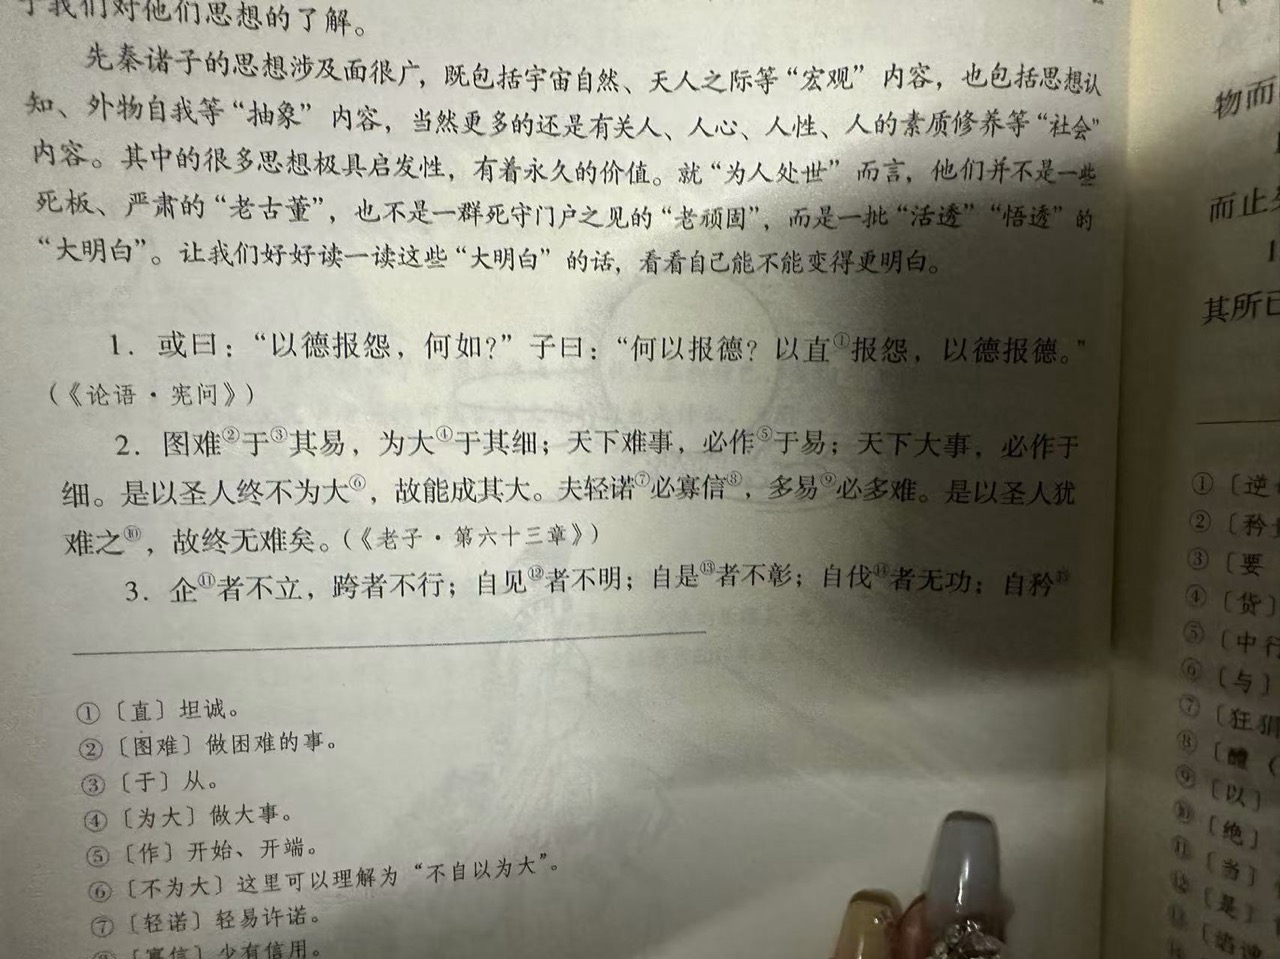 于我们对他们思想的了解。
先秦诸子的思想涉及面很广，既包括宇宙自然、天人之际等“宏观”内容，也包括思想认
知、外物自我等“抽象”内容，当然更多的还是有关人、人心、人性、人的素质修养等“社会”
内容。其中的很多思想极具启发性，有着永久的价值。就“为人处世”而言，他们并不是一些
死板、严肃的“老古董”，也不是一群死守门户之见的“老顽固”，而是一批“活透”“悟透”的
“大明白”。让我们好好读一读这些“大明白”的话，看看自己能不能变得更明白。
1．或曰：“以德报怨，何如？”子曰：“何以报德？以直①报怨，以德报德。”
（《论语·宪问》）
2．图难②于③其易，为大④于其细；天下难事，必作⑤于易；天下大事，必作于
细。是以圣人终不为大⑥，故能成其大。夫轻诺⑦必寡信⑧，多易⑨必多难。是以圣人犹
难之⑩，故终无难矣。（《老子·第六十三章》）
3．企⑪者不立，跨者不行；自见⑫者不明；自是⑬者不彰；自伐⑭者无功；自矜⑮
①〔直〕坦诚。
②〔图难〕做困难的事。
③〔于〕从。
④〔为大〕做大事。
⑤〔作〕开始、开端。
⑥〔不为大〕这里可以理解为“不自以为大”。
⑦〔轻诺〕轻易许诺。
⑧〔寡信〕少有信用。
物而
而止
其所已
①〔逆
②〔矜
③〔要
④〔货〕
⑤〔中行
⑥〔与〕
⑦〔狂狷
⑧〔醴（
⑨〔以〕
⑩〔绝〕
⑪〔当〕
⑫〔是〕
⑬〔谄谀